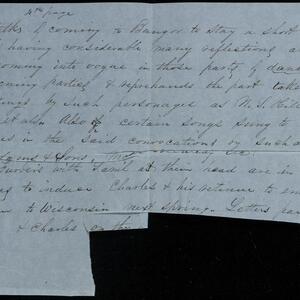 4th page
talks of coming to Bangor to stay a short
having considerable many reflections a
coming into vogue in those parts, of danc
ening parties & reprehends the part take
ings by such personages as
st also. Also of certain songs sung to
es in the said convocations by such a
& Sons,
with Saml at their head are in
ng to induce Charles & his retinue to em
n to Wisconsin next spring. Letters pa
& Charles on the